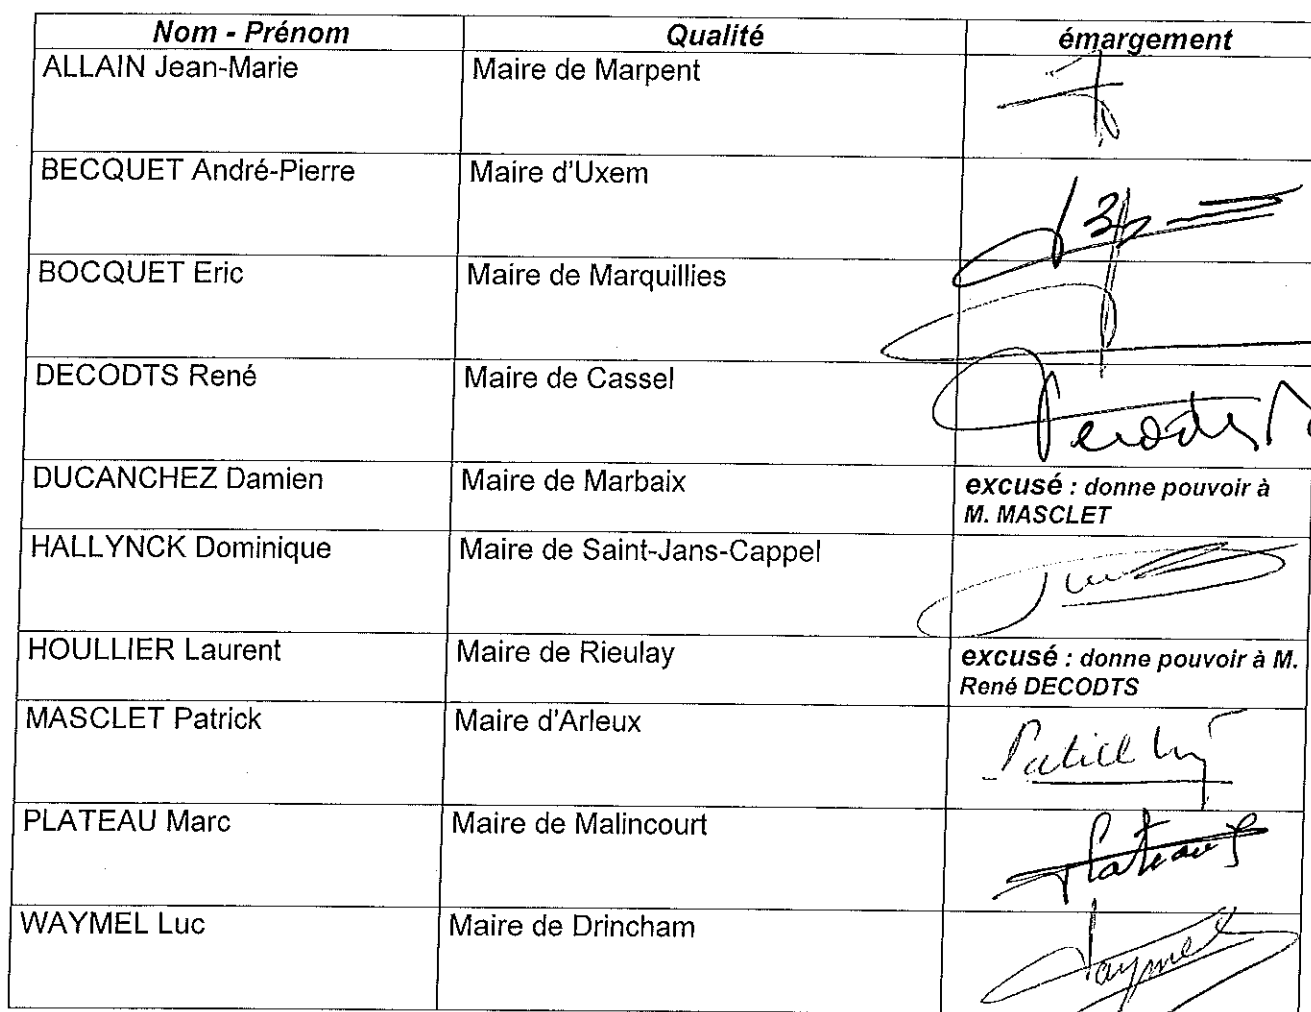 Nom - Prénom Qualité émargement
ALLAIN Jean-Marie Maire de Marpent
BECQUET André-Pierre Maire d'Uxem
BOCQUET Eric Maire de Marquillies
DECODTS René Maire de Cassel
DUCANCHEZ Damien Maire de Marbaix excusé : donne pouvoir à
M. MASCLET
HALLYNCK Dominique Maire de Saint-Jans-Cappel
HOULLIER Laurent Maire de Rieulay excusé : donne pouvoir à M.
René DECODTS
MASCLET Patrick Maire d'Arleux
PLATEAU Marc Maire de Malincourt Plateau
WAYMEL Luc Maire de Drincham Waymel